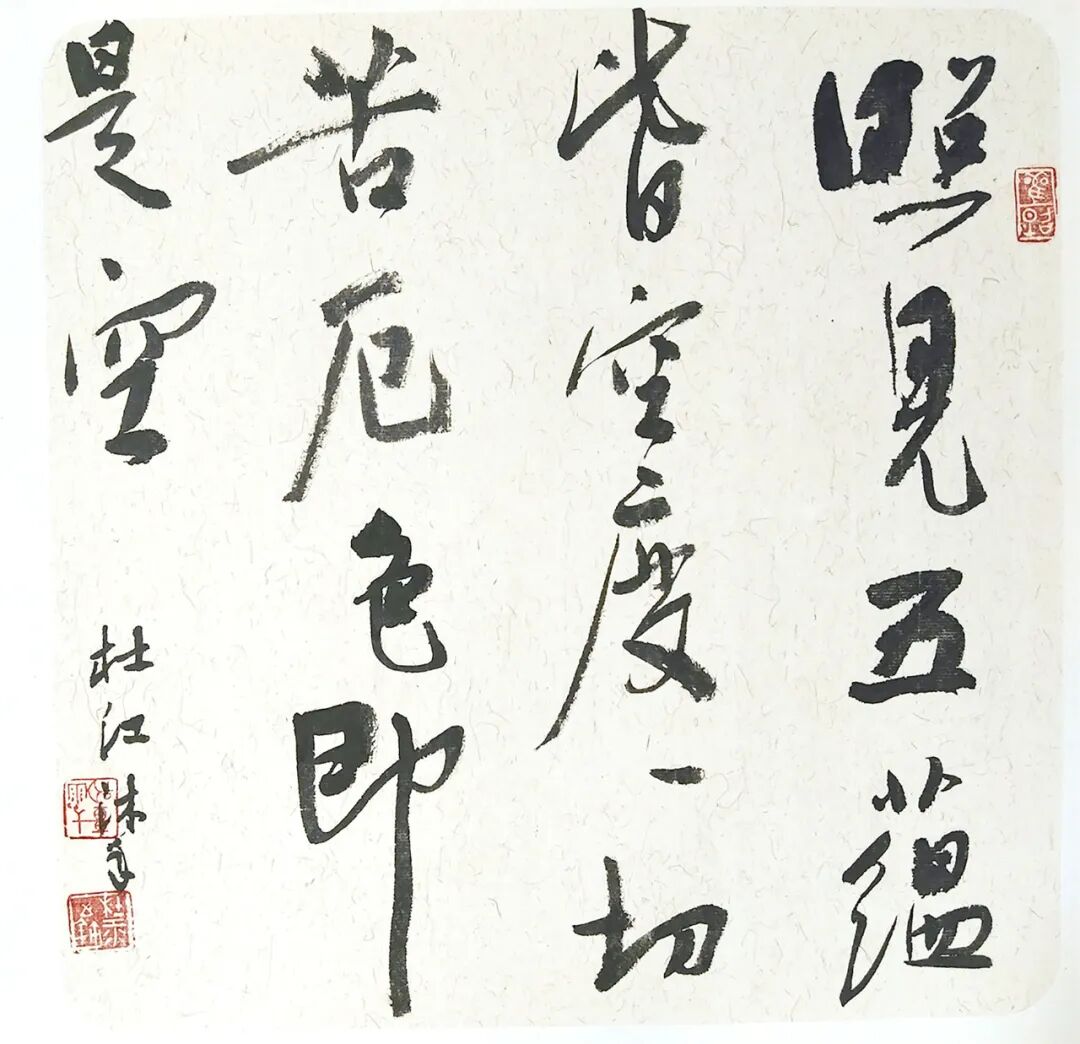 照见五蕴
皆空度一切
苦厄色即
是空
杜江